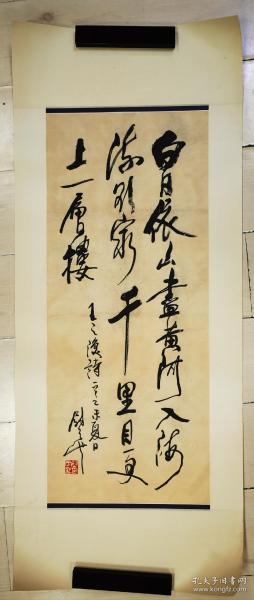 白日依山盡黄河入海
流欲窮千里目更
上一層樓
王之渙詩 乙未夏日
孔夫子旧书网
www.kongfz.com